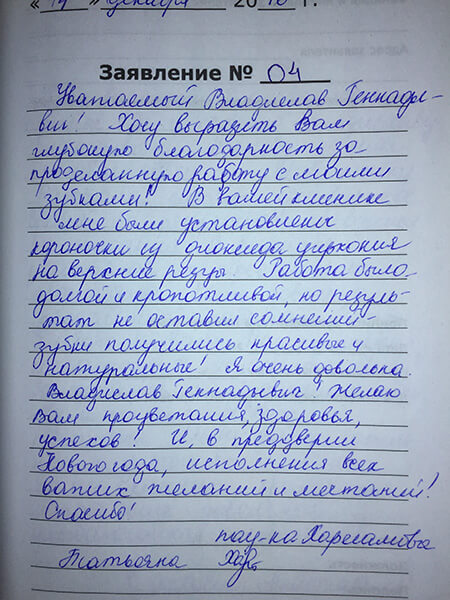 «19» декабря 2016 г.
Адрес заявителя
Заявление № 04
Уважаемый Владислав Геннадье-
вич! Хочу выразить Вам
глубокую благодарность за
проделанную работу с моими
зубками! В вашей клинике
мне были установлены
короночки из диоксида циркония
на верхние резцы. Работа была
долгой и кропотливой, но резуль-
тат не оставил сомнений-
зубки получились красивые и
натуральные! Я очень довольна.
Владислав Геннадьевич! Желаю
Вам процветания, здоровья,
успехов! И, в преддверии
Нового года, исполнения всех
ваших желаний и мечтаний!
Спасибо!
пац-ка
Татьяна